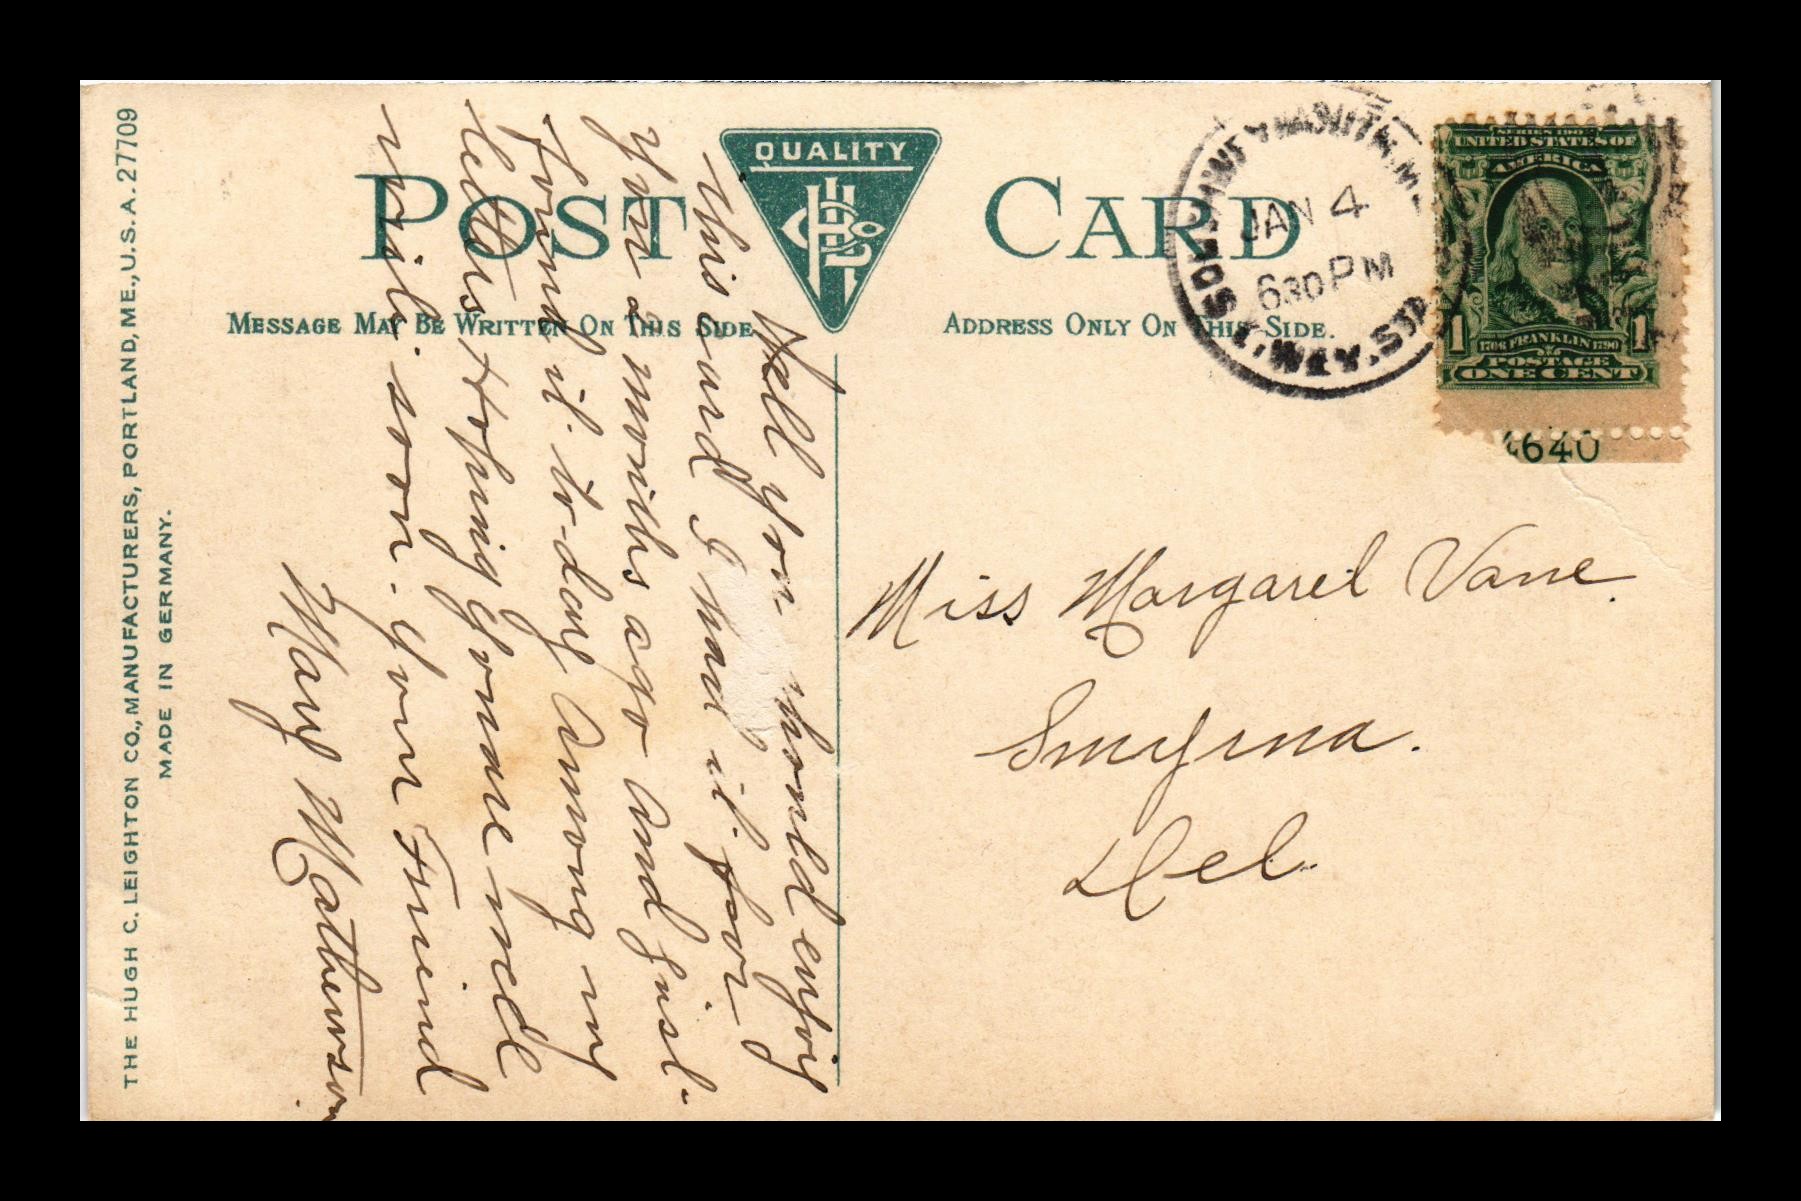 QUALITY
POST CARD
MESSAGE MAY BE WRITTEN ON THIS SIDE
ADDRESS ONLY ON THIS SIDE.
THE HUGH C. LEIGHTON CO., MANUFACTURERS, PORTLAND, ME., U.S.A. 27709
MADE IN GERMANY.
JAN 4
630 PM
SERIES 1902
UNITED STATES OF
AMERICA
1 1
1706 FRANKLIN 1790
POSTAGE
ONE CENT
4640
Well you should enjoy
this card I have it for
you 2 months ago and just
found it to-day among my
letters Hoping you are well
write soon. your Friend
Mary Mathewson
Miss Margaret Vane.
Smyrna.
Del.